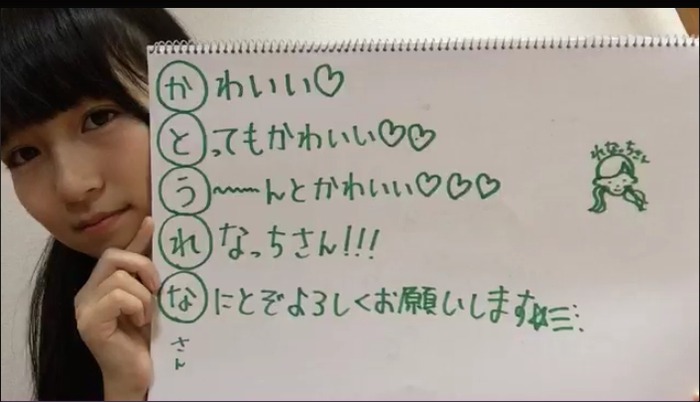 かわいい♡
とってもかわいい♡♡
う〜〜んとかわいい♡♡♡
れなっちさん!!!
なにとぞよろしくお願いします☆彡
さん
れなっちさん